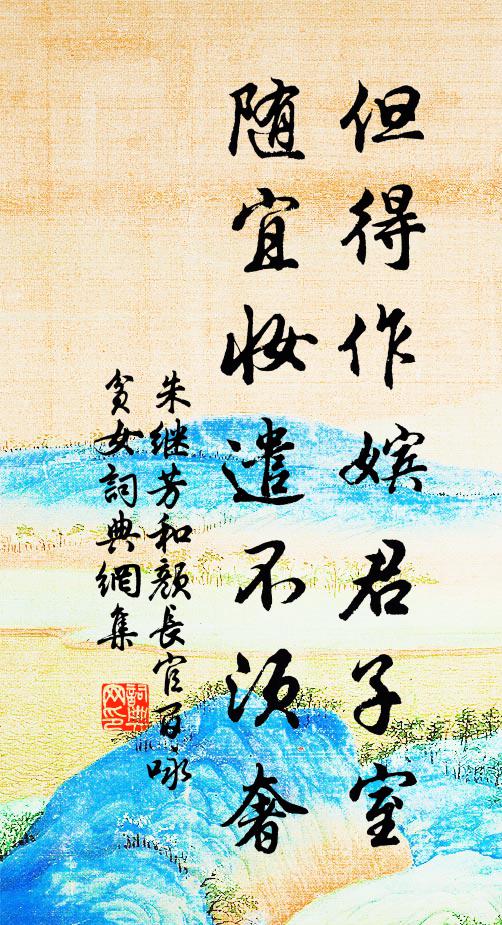 但得作嫔君子室
随宜妝遣不须奢
朱继芳和颜長官百咏
贫女詞典網集
詞典网印